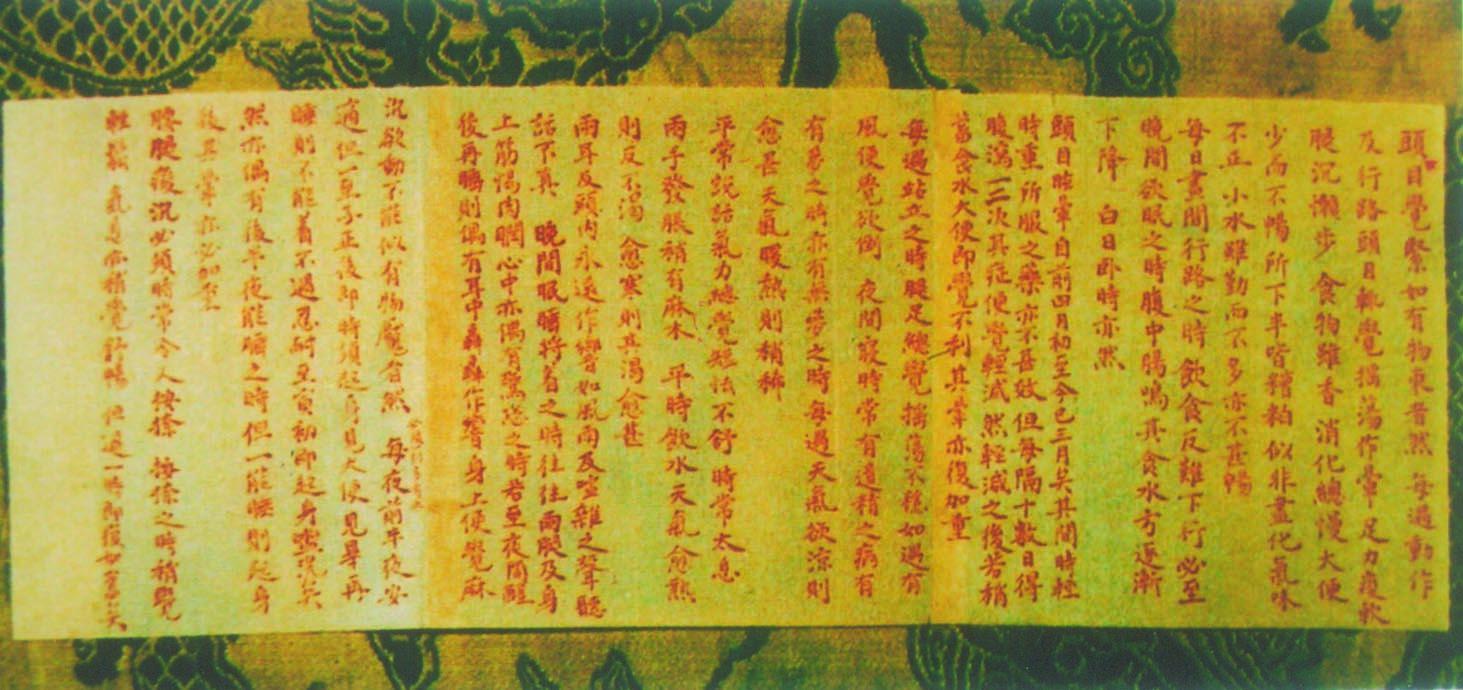 頭目覺緊如有物束者然 每遇動作
及行路頭目輒覺搖蕩作暈足力痠軟
腿沉懶步 食物雖香消化總慢大便
少而不暢所下半皆糟粕似非盡化氣味
不正 小水雖勤而不多亦不甚暢
每日晝間行路之時飲食反難下行必至
晚間欲眠之時腹中腸鳴其食水方逐漸
下降 白日臥時亦然
頭目眩暈自前四月初至今已三月矣其間時輕
時重所服之藥亦不甚效但每隔十數日得
腹瀉一二次其症便覺輕減然輕減之後若稍
蓄食水大便即覺不利其暈亦復加重
每遇站立之時腿足總覺搖蕩不穩如遇有
風便覺欲倒 夜間寢時常有遺精之病有
有夢之時亦有無夢之時每遇天氣欲涼則
愈甚天氣暖熱則稍稀
平常說話氣力總覺短怯不舒時常太息
兩手發脹稍有麻木 平時飲水天氣愈熱
則反不渴愈寒則其渴愈甚
兩耳及頭內永遠作響如風雨及喧雜之聲聽
話不真 晚間眠臥將着之時往往兩腿及身
上筋惕肉瞤心中亦偶有驚恐之時若至夜間醒
後再臥則偶有耳中轟轟作響身上便覺麻
沉欲動不能似有物魘者然 每夜前半夜安
適但一至子正後即時須起身見大便見畢再
睡則不能着不過忍耐至寅初即起身盥洗矣
然亦偶有後半夜能臥之時但一能睡則起身
後其暈亦必加重
腰腿痠沉必須時常令人按揉 按揉之時稍覺
輕鬆 氣息亦稍覺舒暢 但過一時即復如舊矣